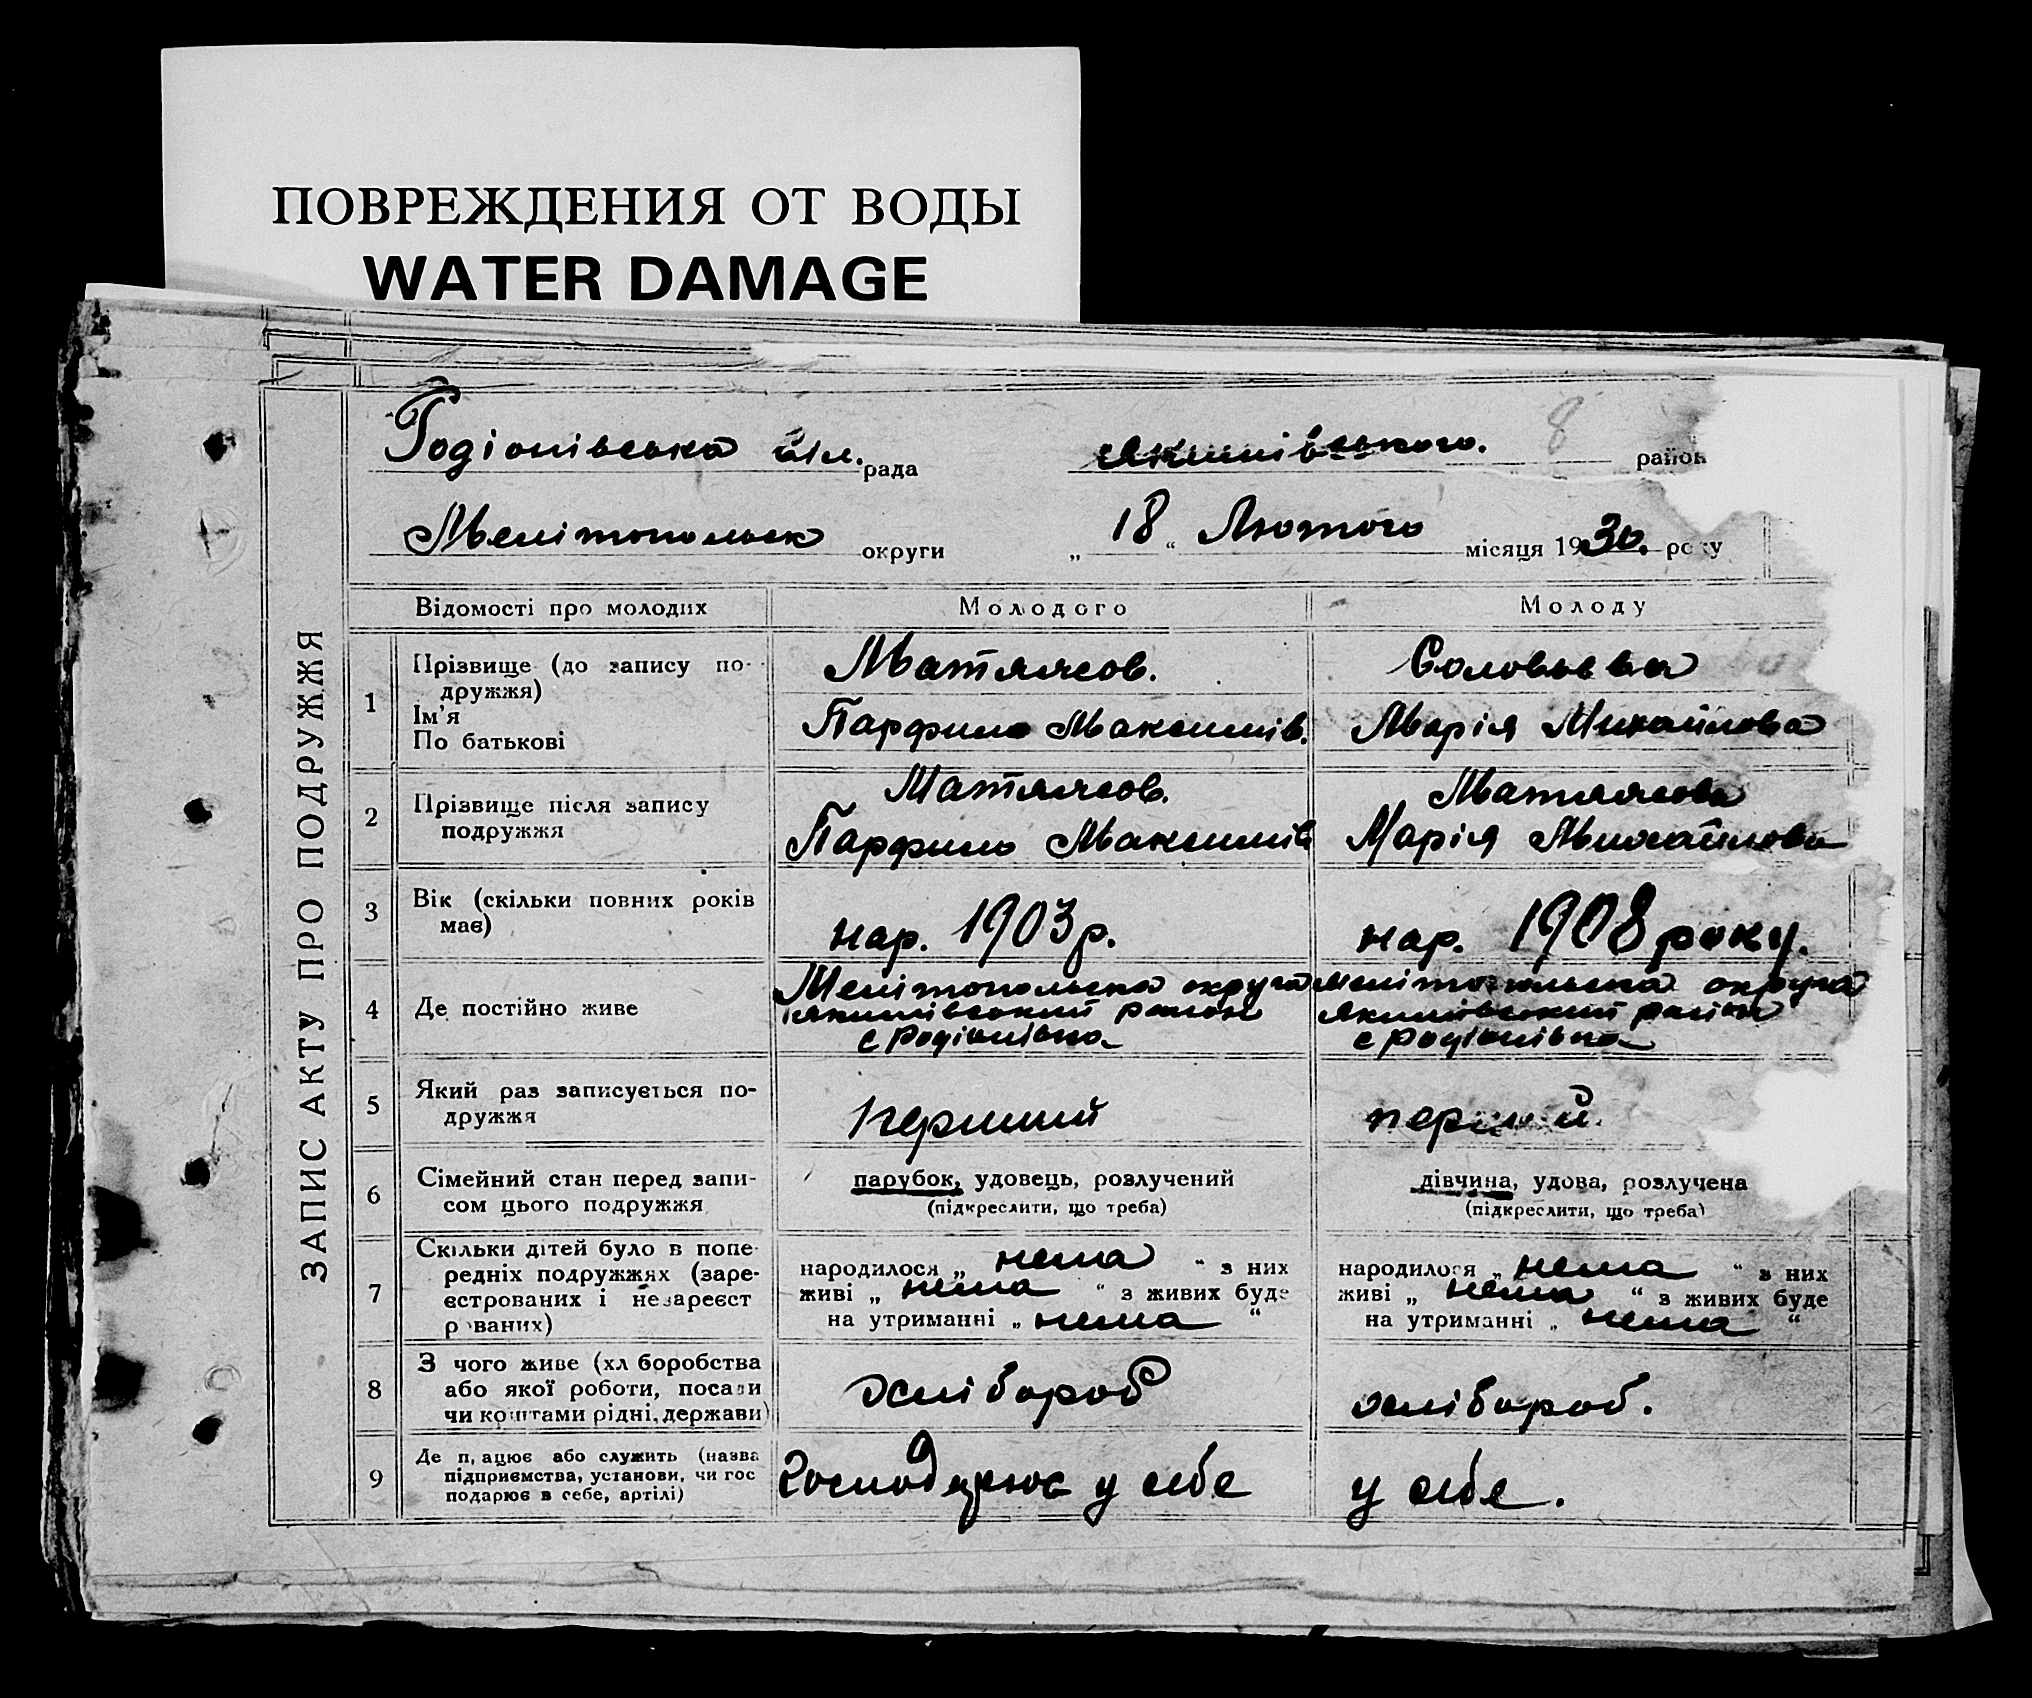 ПОВРЕЖДЕНИЯ ОТ ВОДЫ
WATER DAMAGE
8
Родіонівська сіл. рада Якимівського. район
Мелітопольск округи „ 18 “ Лютого місяця 1930. року
ЗАПИС АКТУ ПРО ПОДРУЖЖЯ
Відомості про молодих Молодого Молоду
1
Прізвище (до запису по-
дружжя)
Ім'я
По батькові
Матяясов.
Парфило Максимів.
Соловьева
Марія Михайлова
2
Прізвище після запису
подружжя
Матяясов.
Парфило Максимів
Матяясова
Марія Михайлова
3
Вік (скільки повних років
має)
нар. 1903 р.
нар. 1908 року.
4
Де постійно живе
Мелітопольска округа
Якимівський район
с Родіонівка
Мелітопольска округа
Якимівский район
с Родіонівка
5
Який раз записується по-
дружжя
перший
перший.
6
Сімейний стан перед запи-
сом цього подружжя
парубок, удовець, розлучений
(підкреслити, що треба)
дівчина, удова, розлучена
(підкреслити, що треба)
7
Скільки дітей було в попе-
редніх подружжях (заре-
єстрованих і незареєст
рованих)
народилося „ нема “ з них
живі „ нема “ з живих буде
на утриманні „ нема “
народилося „ нема “ з них
живі „ нема “ з живих буде
на утриманні „ нема “
8
З чого живе (хліборобства
або якої роботи, посади
чи коштами рідні, держави)
хлібороб
хлібороб.
9
Де працює або служить (назва
підприємства, установи, чи гос
подарює в себе, артілі)
Господарює у себе
у себе.